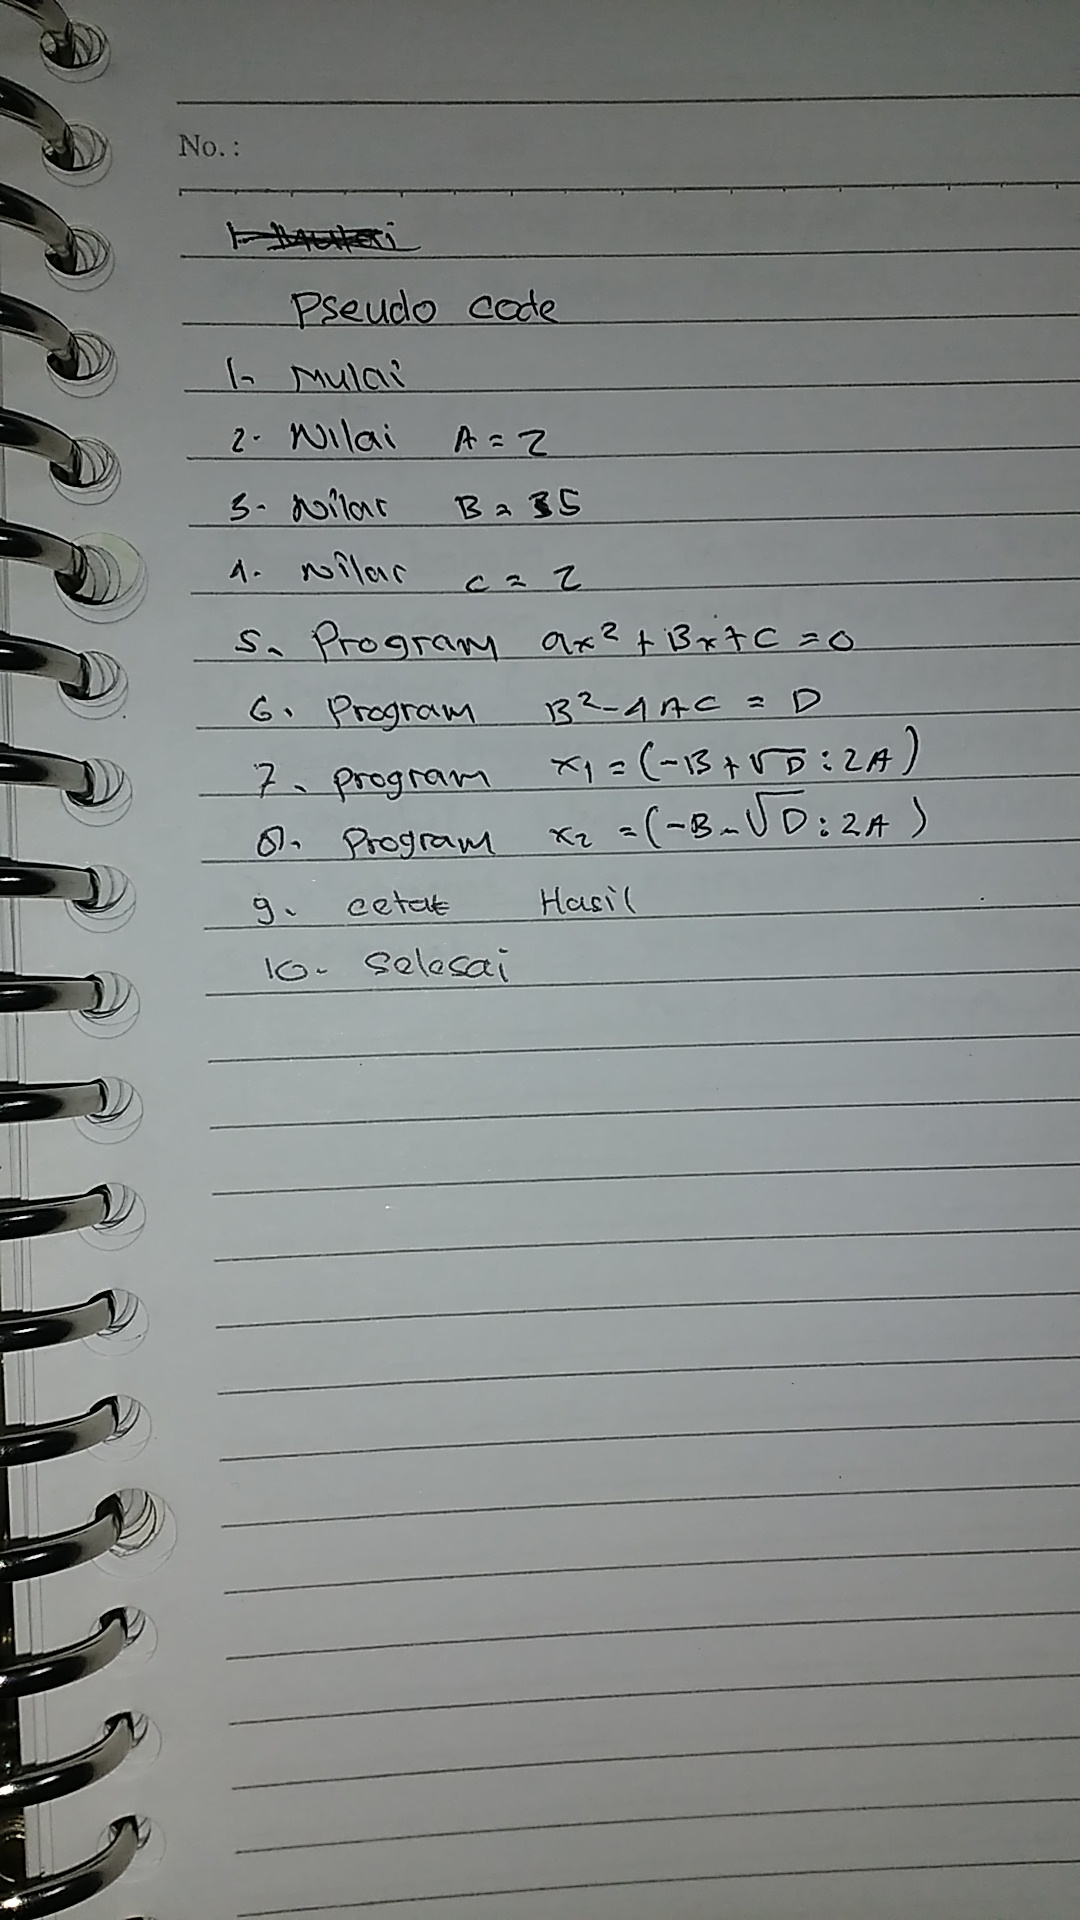 No. :
Pseudo code
1. Mulai
2. Nilai A = 2
3. Nilai B = 5
4. Nilai C = 2
5. Program ax² + Bx + C = 0
6. Program B² - 4AC = D
7. Program x₁ = (-B + √D : 2A)
8. Program x₂ = (-B - √D : 2A)
9. cetak Hasil
10. Selesai